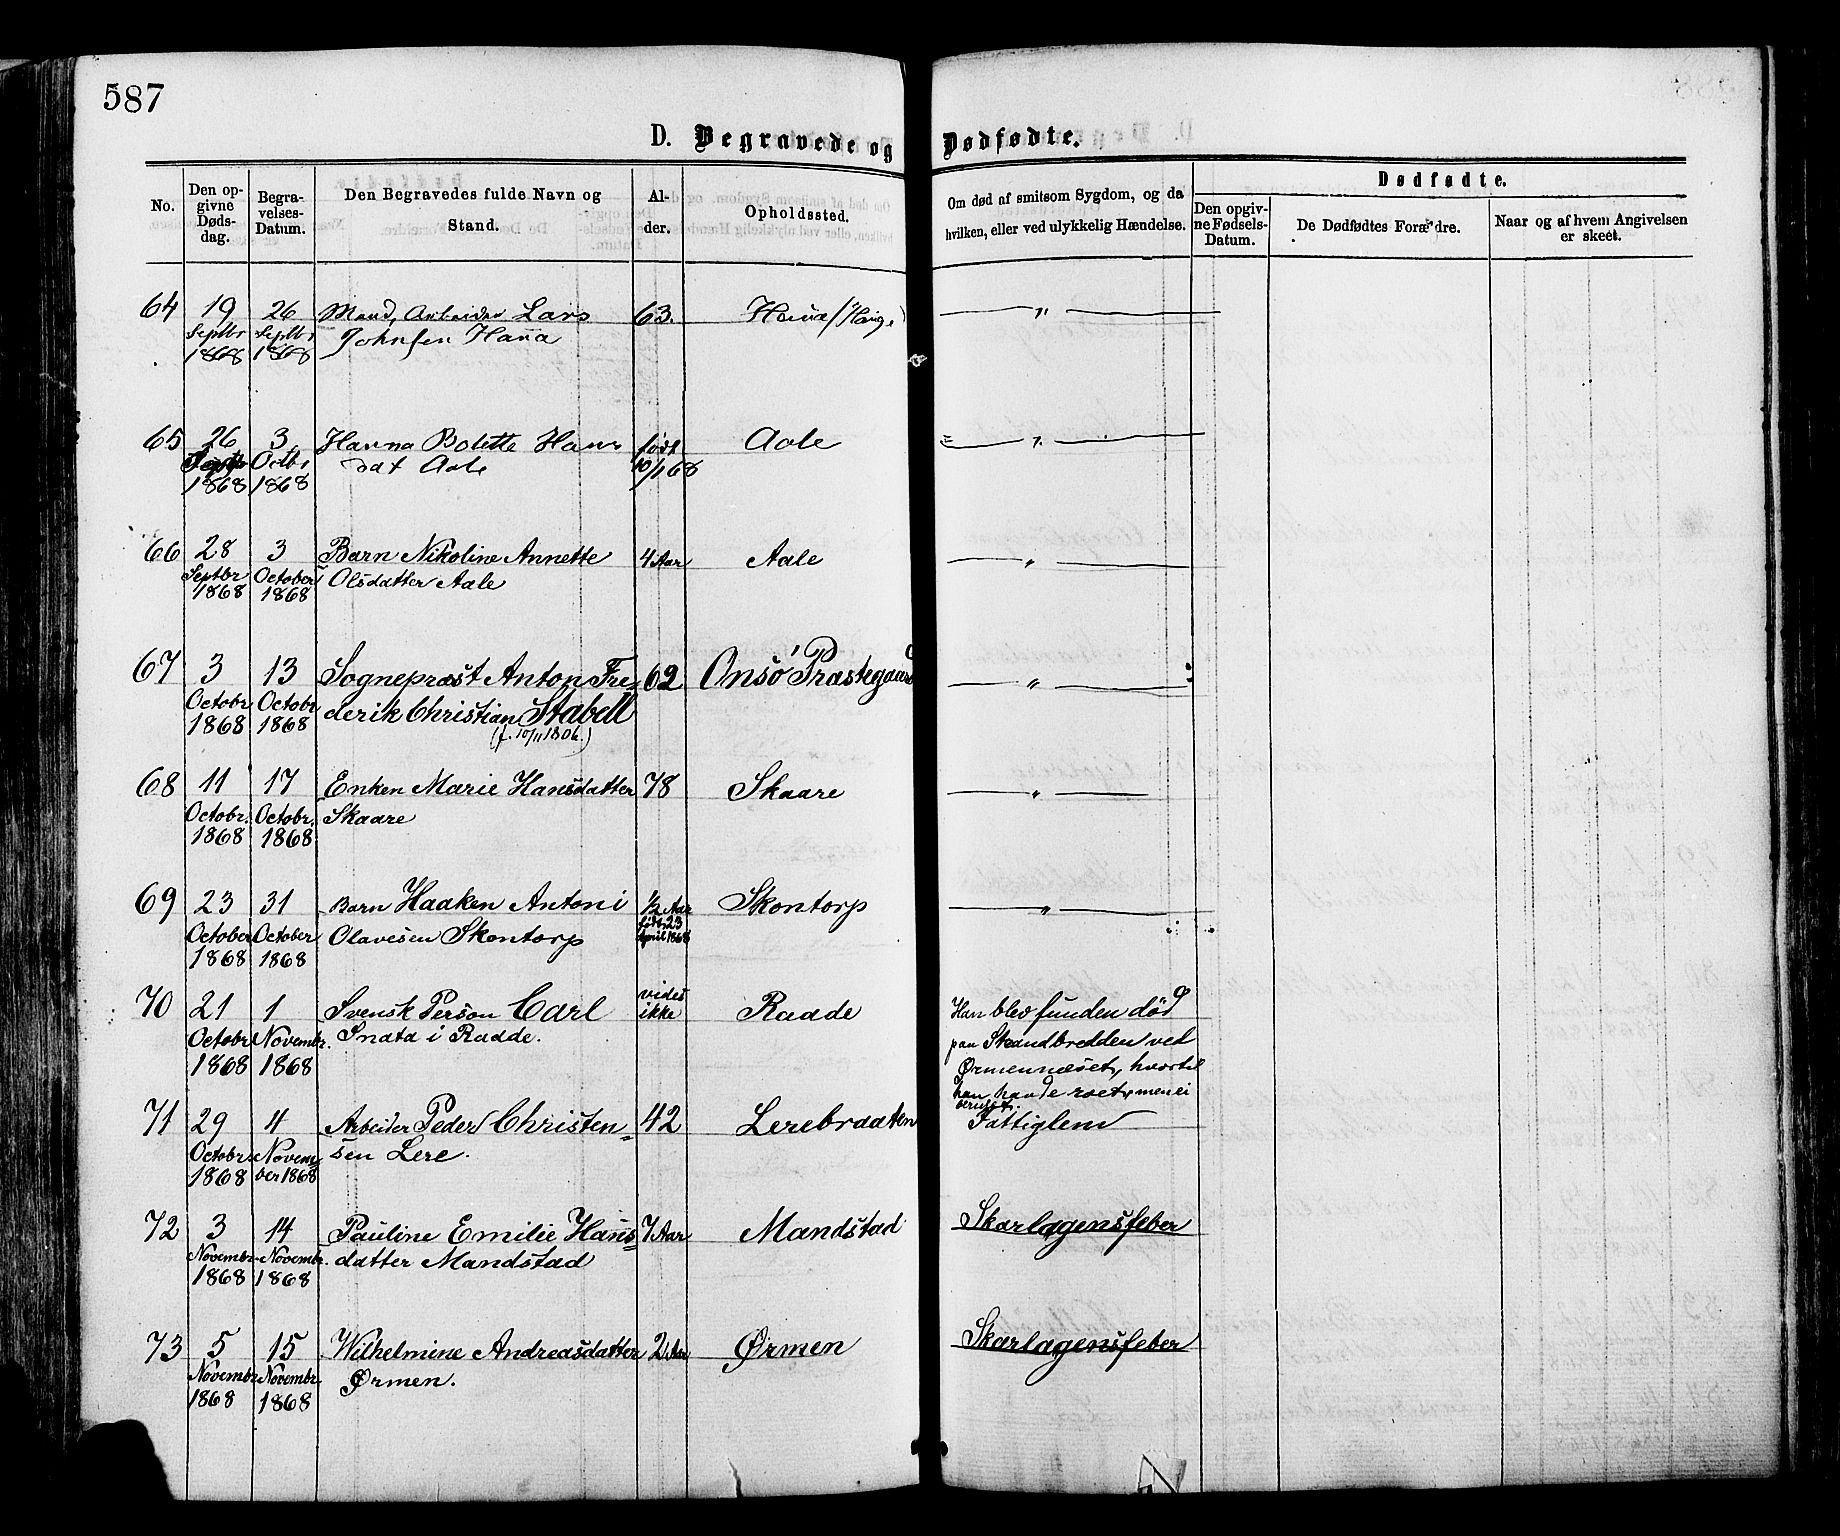 587
D. Begravede og Dødfødte.
No.
Den opgivne Dødsdag.
Begravelses-Datum.
Den Begravedes fulde Navn og Stand.
Alder.
Opholdssted.
Om død af smitsom Sygdom, og da hvilken, eller ved ulykkelig Hændelse.
Dødfødte.
Den opgivne Fødsels-Datum.
De Dødfødtes Forældre.
Naar og af hvem Angivelsen er skeet.
64 19 26 Mand, Arbeider Lars 63. Hauа (Hauge) — " —
Septbr Septbr Johnsen Hauа
1868 1868
65 26 3 Hanna Bolette Hans født Aale — " —
Septbr Octbr dat Aale 10/1 68
1868 1868
66 28 3 Barn Nikoline Annette 4 Aar Aale — " —
Septbr October Olsdatter Aale
1868 1868
67 3 13 Sognepræst Anton Fre- 62 Onsø Præstegaard — " —
Octobr Octobr derik Christian Stabell
1868 1868 (f. 10/11 1806.)
68 11 17 Enken Marie Hansdatter 78 Skaare — " —
Octobr. Octobr. Skaare
1868 1868
69 23 31 Barn Haaken Antoni 1/2 Aar Skontorp — " —
October October Olavesen Skontorp født 23
1868 1868 April 1868
70 21 1 Svensk Person Carl vides Raade Han blev funden død
Octobr Novembr. Snata i Raade. ikke paa Strandbredden ved
1868 1868 Ørmennæset, hvortil
han havde roet, men ei
beruset.
71 29 4 Arbeider Peder Christen= 42 Lerebraaten Fattiglem
Octobr. Novem sen Lere.
1868 ber 1868
72 3 14 Pauline Emilie Hans= 7 Aar Mandstad Skarlagensfeber
Novembr Novembr. datter Mandstad
1868 1868
73 5 15 Wilhelmine Andreasdatter 2 Aar Ørmen Skarlagensfeber
Novembr Novembr. Ørmen.
1868 1868